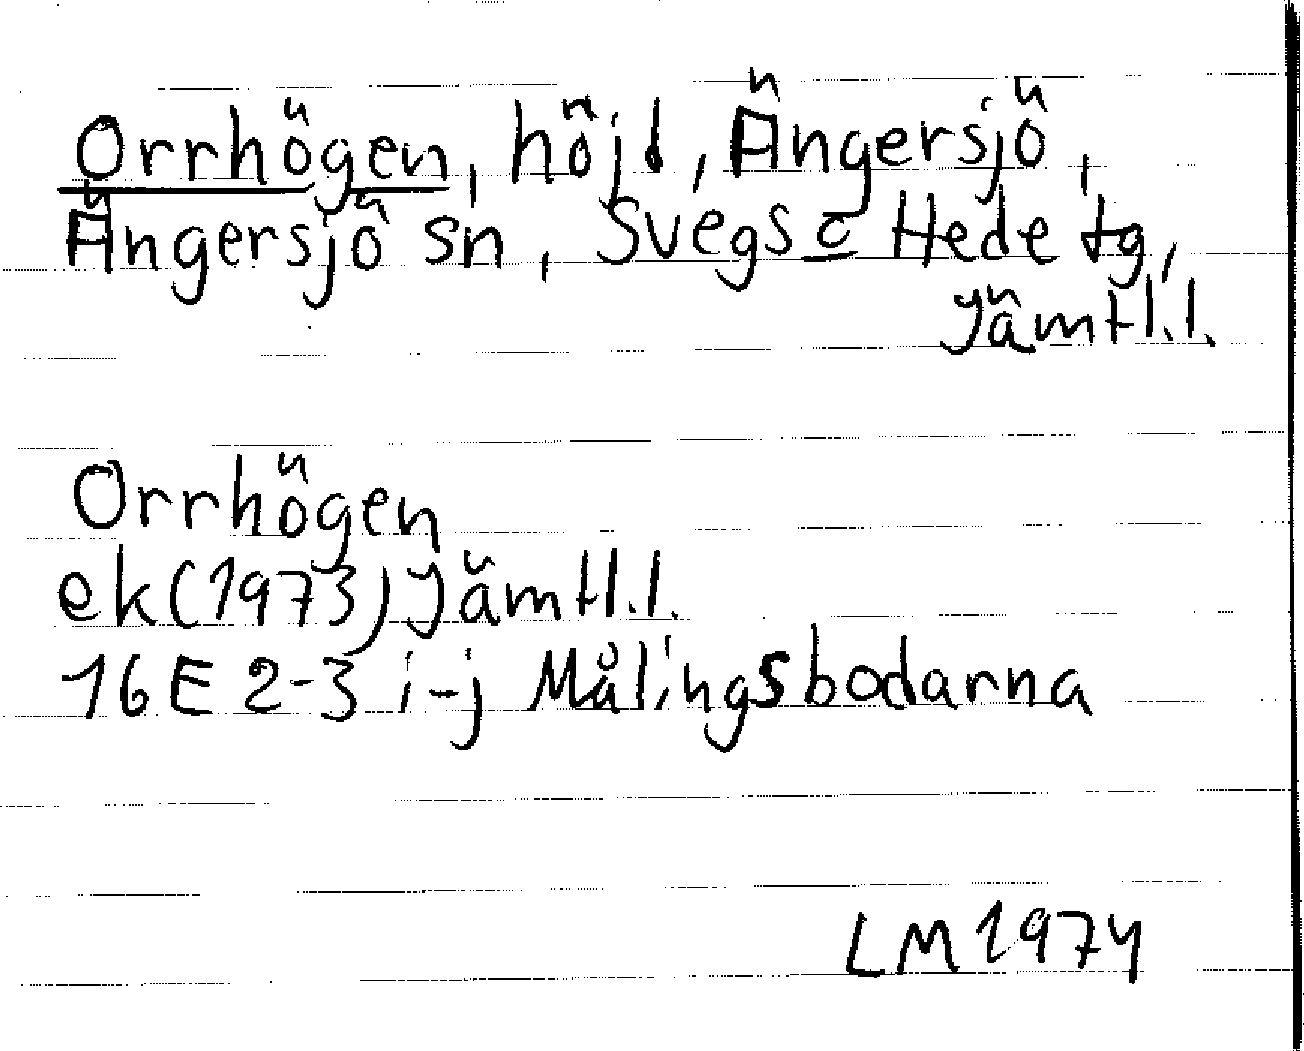 Orrhögen, höjd, Ängersjö,
Ängersjö sn, Svegs o Hede tg,
Jämtl.l.
Orrhögen
ek(1973) Jämtl.l.
16E 2-3 i-j Målingsbodarna
LM 1974